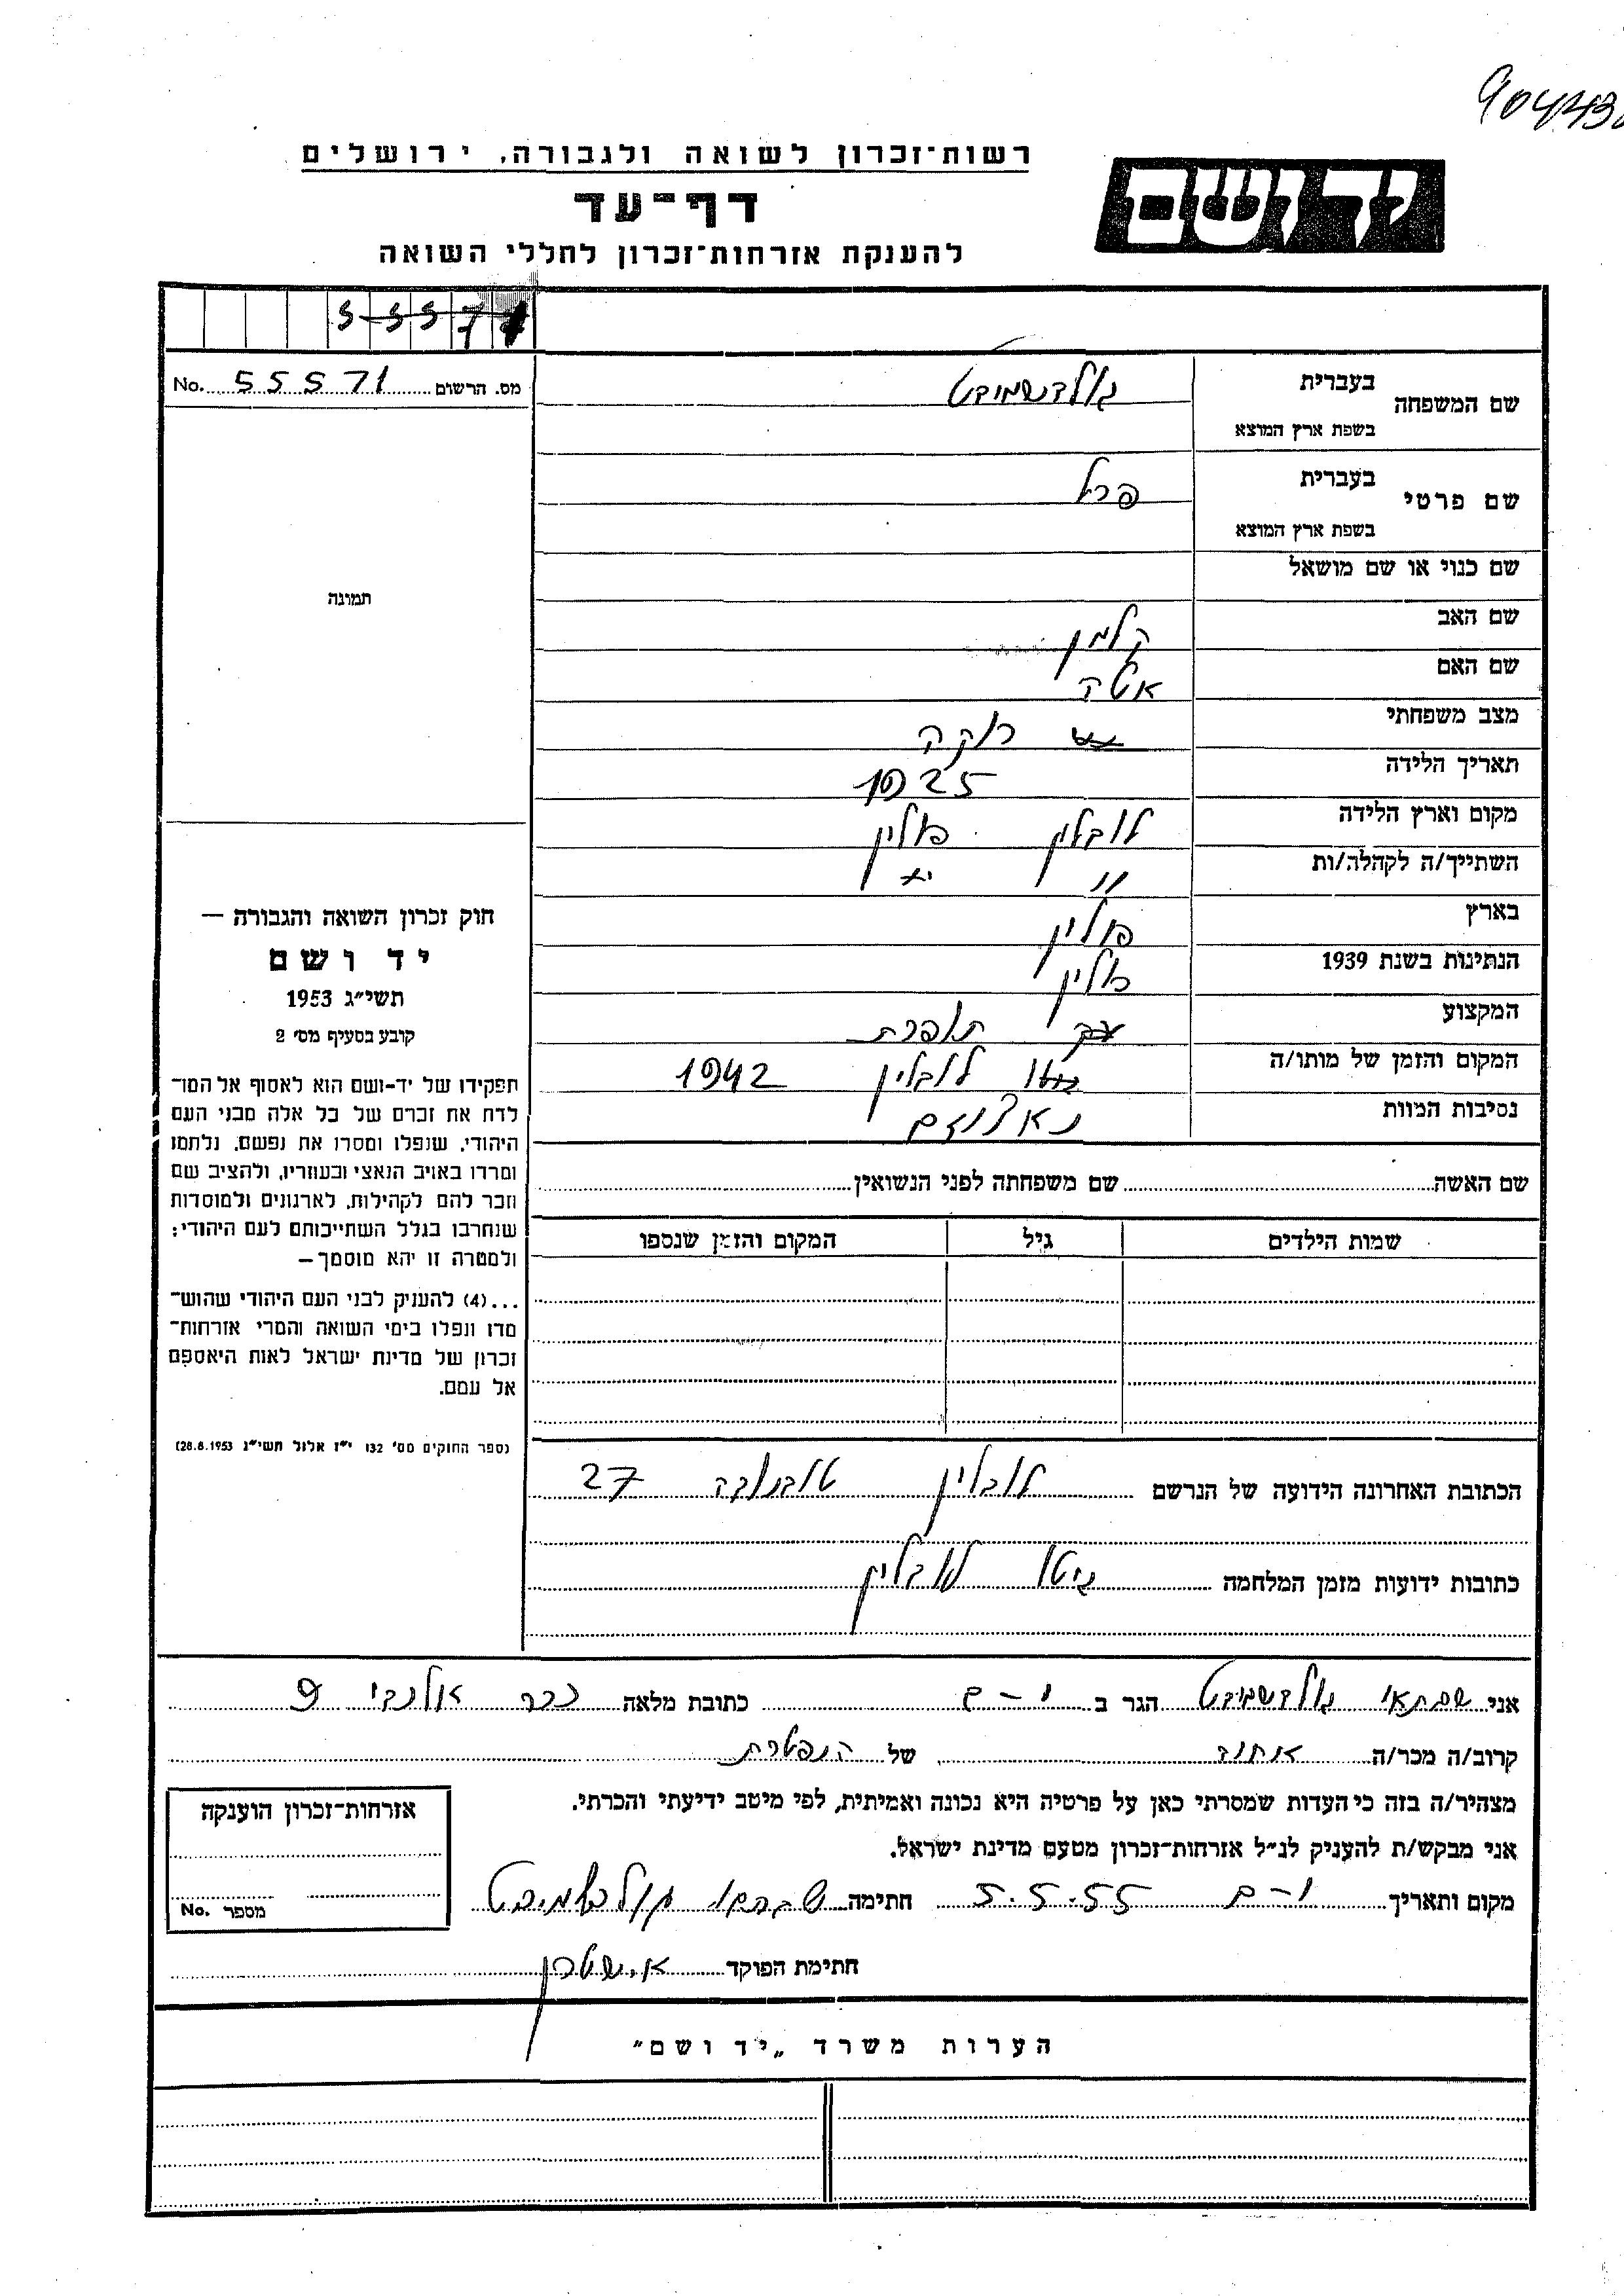 90443
רשות־זכרון לשואה ולגבורה, ירושלים
יד ושם
דף־עד
להענקת אזרחות־זכרון לחללי השואה
5 5 5 7 1
מס. הרשום 55571 No.
תמונה
שם המשפחה בעברית גולדשמידט
בשפת ארץ המוצא
שם פרטי בעברית פרל
בשפת ארץ המוצא
שם כנוי או שם מושאל
שם האב קלמן
שם האם אטה
מצב משפחתי רוקה
תאריך הלידה 1925
מקום וארץ הלידה לובלין פולין
השתייך/ה לקהלה/ות " "
בארץ פולין
הנתינות בשנת 1939 פולין
המקצוע תופרת
המקום והזמן של מותו/ה גטו לובלין 1942
נסיבות המוות
חוק זכרון השואה והגבורה —
יד ושם
תשי״ג 1953
קובע בסעיף מס׳ 2
תפקידו של יד-ושם הוא לאסוף אל המו־
לדת את זכרם של כל אלה מבני העם
היהודי, שנפלו ומסרו את נפשם, נלחמו
ומרדו באויב הנאצי ובעוזריו, ולהציב שם
וזכר להם לקהילות, לארגונים ולמוסדות
שנחרבו בגלל השתייכותם לעם היהודי;
ולמטרה זו יהא מוסמך —
...(4) להעניק לבני העם היהודי שהוש־
מדו ונפלו בימי השואה והמרי אזרחות־
זכרון של מדינת ישראל לאות היאספם
אל עמם.
(ספר החוקים מס׳ 132 י״ז אלול תשי״ג 28.8.1953)
שם האשה שם משפחתה לפני הנשואין
שמות הילדים גיל המקום והזמן שנספו
הכתובת האחרונה הידועה של הנרשם לובלין 27
כתובות ידועות מזמן המלחמה גיטו לובלין
אני שבתאי גולדשמידט הגר ב י-ם כתובת מלאה ככר אלנבי 9
קרוב/ה מכר/ה אחות של הנפטרת
מצהיר/ה בזה כי העדות שמסרתי כאן על פרטיה היא נכונה ואמיתית, לפי מיטב ידיעתי והכרתי.
אני מבקש/ת להעניק לנ״ל אזרחות־זכרון מטעם מדינת ישראל.
מקום ותאריך י-ם 5.5.55 חתימה שבתאי גולדשמידט
חתימת הפוקד א. שטרן
אזרחות־זכרון הוענקה
מספר No.
הערות משרד „יד ושם״